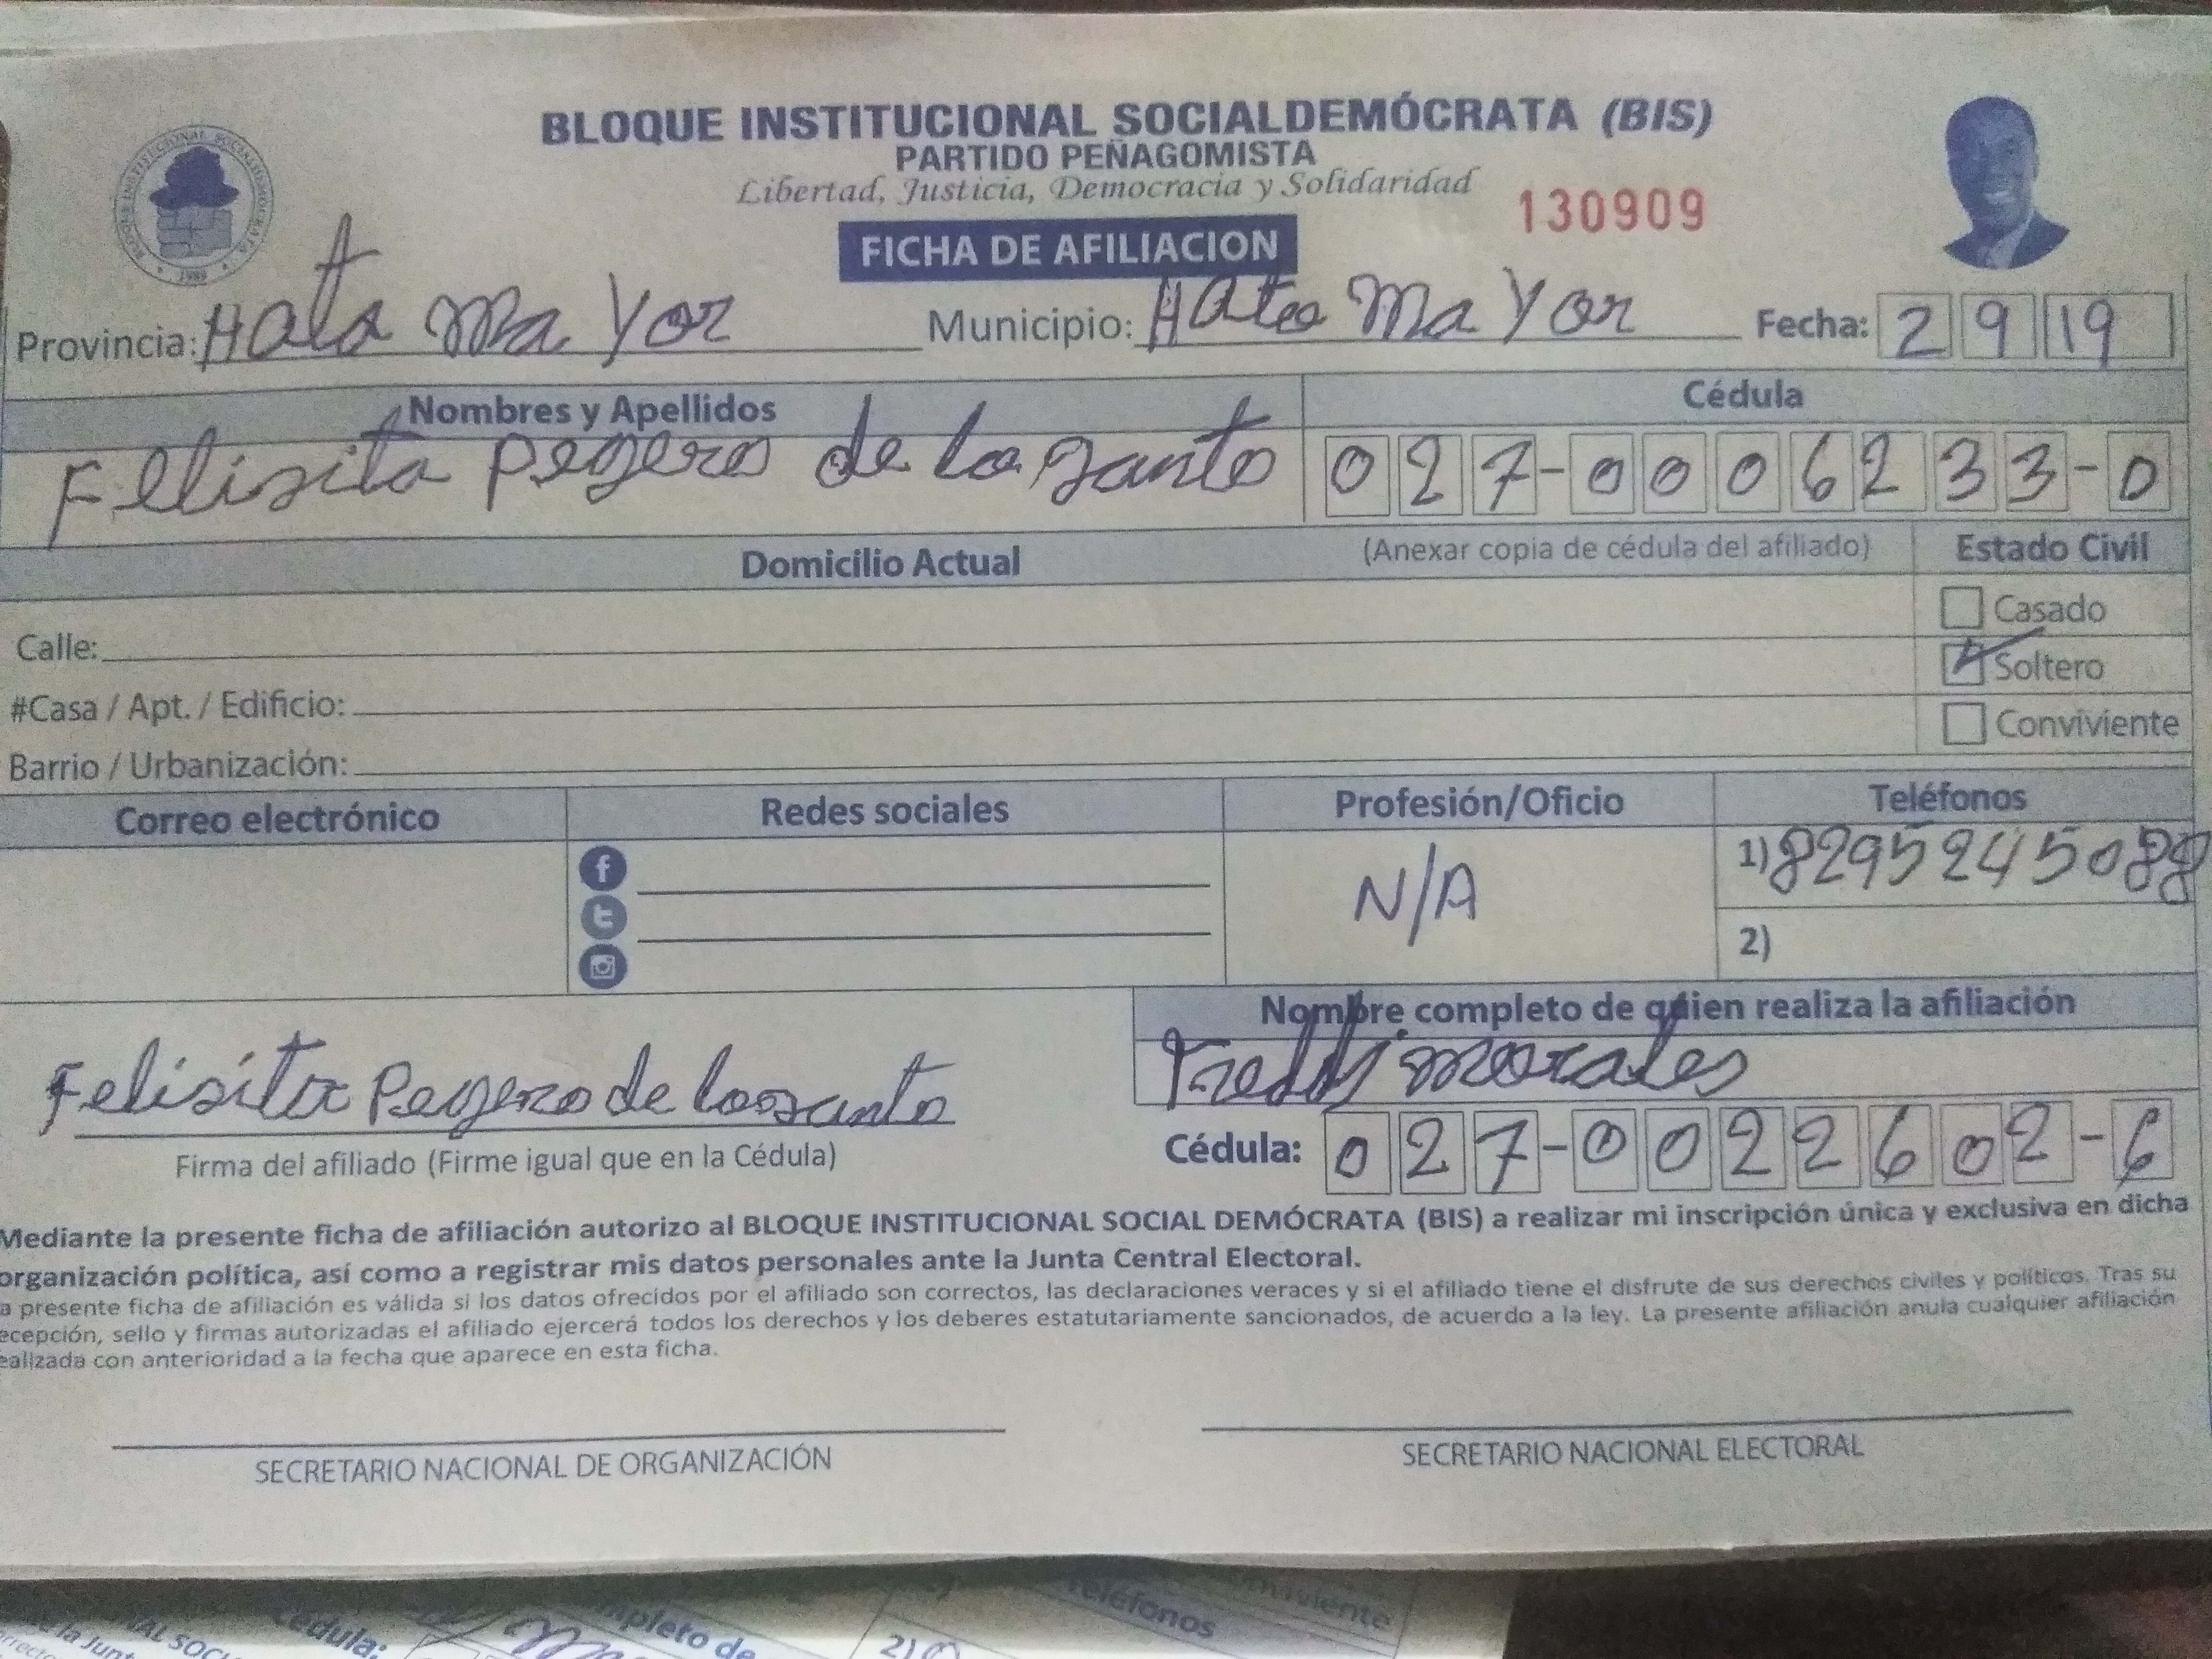 BLOQUE INSTITUCIONAL SOCIALDEMÓCRATA (BIS)
PARTIDO PEÑAGOMISTA
Libertad, Justicia, Democracia y Solidaridad
130909
FICHA DE AFILIACION
BLOQUE INSTITUCIONAL SOCIALDEMOCRATA
Provincia: Hato Ma Yor Municipio: Hato Ma Yor Fecha: 2 9 19
Nombres y Apellidos Cédula
Felisita Pegero de los santo 027-0006233-0
Domicilio Actual (Anexar copia de cédula del afiliado) Estado Civil
Casado
Calle: Soltero
#Casa / Apt. / Edificio: Conviviente
Barrio / Urbanización:
Correo electrónico Redes sociales Profesión/Oficio Teléfonos
N/A 1) 8295245088
2)
Nombre completo de quien realiza la afiliación
Freddy morales
Felisita Pegero de los santo
Firma del afiliado (Firme igual que en la Cédula) Cédula: 027-0022602-6
Mediante la presente ficha de afiliación autorizo al BLOQUE INSTITUCIONAL SOCIAL DEMÓCRATA (BIS) a realizar mi inscripción única y exclusiva en dicha
organización política, así como a registrar mis datos personales ante la Junta Central Electoral.
a presente ficha de afiliación es válida si los datos ofrecidos por el afiliado son correctos, las declaraciones veraces y si el afiliado tiene el disfrute de sus derechos civiles y políticos. Tras su
ecepción, sello y firmas autorizadas el afiliado ejercerá todos los derechos y los deberes estatutariamente sancionados, de acuerdo a la ley. La presente afiliación anula cualquier afiliación
ealizada con anterioridad a la fecha que aparece en esta ficha.
SECRETARIO NACIONAL DE ORGANIZACIÓN SECRETARIO NACIONAL ELECTORAL
Cédula: mpleto de Teléfonos
2)